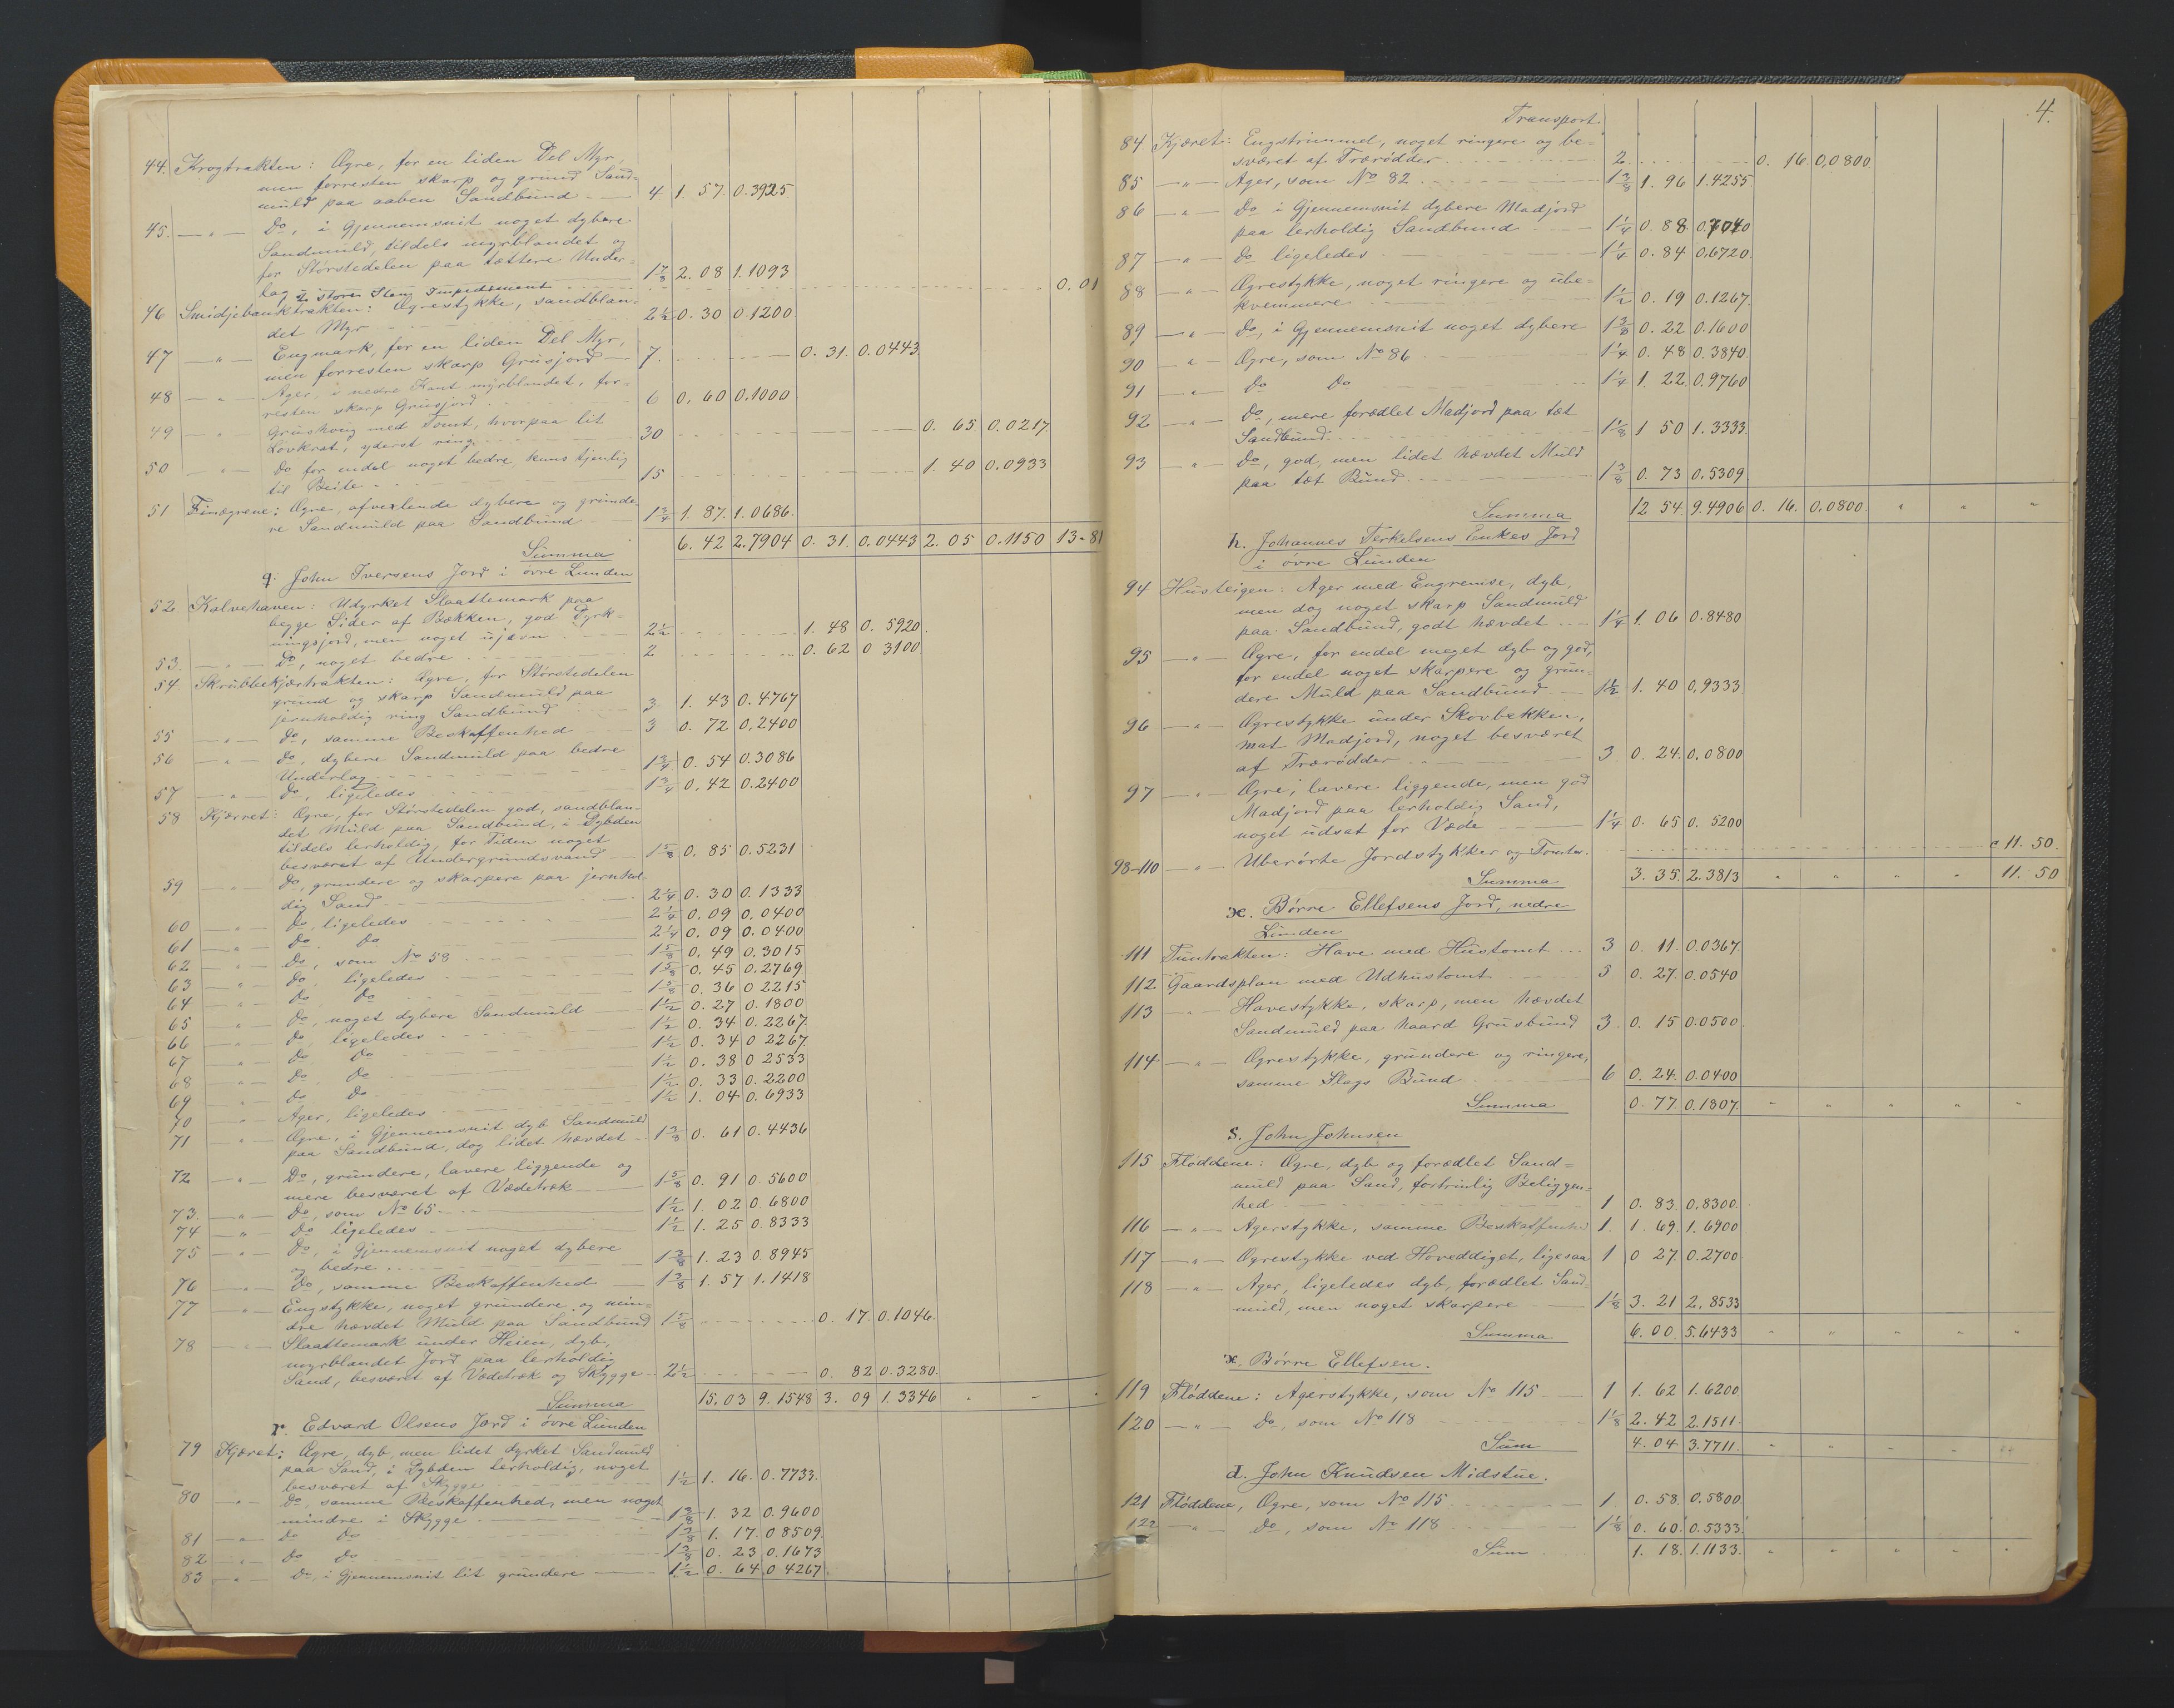 44. Krogtrakten: Ågre, for en liden Del Myr,
men forresten skarp og grund Sand-
muld paa aaben Sandbund 4 1. 57. 0.3925
45. — " — Do, i Gjennemsnit noget dybere
Sandmuld, tildels myrblandet og
for Störstedelen paa tættere Under-
lag, 2 store Sten Impediment 1 7/8 2. 08 1.1093 0.01
46 Smidjebanktrakten: Ågrestykke, sandblan-
det Myr 2 1/2 0. 30 0.1200
47 — " — Engmark, for en liden Del Myr,
men forresten skarp Grusjord 7. 0. 31. 0.0443
48 — " — Ager, i nedre Kant myrblandet, for-
resten skarp Grusjord 6 0. 60 0.1000
49 — " — Grushoug med Tomt, hvorpaa lit
Lövkrat, yderst ring 30 0. 65 0.0217
50 — " — Do for endel noget bedre, kuns tjenlig
til Beite 15 1. 40 0.0933
51 Finægrene: Ågre, afvexlende dybere og grunde-
re Sandmuld paa Sandbund 1 3/4 1. 87. 1.0686.
Summa 6. 42 2.7904 0. 31. 0.0443 2. 05 0.1150 13.81
q. John Iversens Jord i övre Lunden
52 Kalvehaven: Udyrket Slaattemark paa
begge Sider af Bækken, god Dyrk-
ningsjord, men noget ujævn 2 1/2 1. 48 0. 5920
53. — " — Do, noget bedre 2 0. 62 0 3100
54 Skrubbekjærtrakten: Ågre, for Störstedelen
grund og skarp Sandmuld paa
jernholdig ring Sandbund 3 1. 43 0.4767
55 — " — Do, samme Beskaffenhed 3 0. 72 0.2400
56 — " — Do, dybere Sandmuld paa bedre
Underlag 1 3/4 0. 54 0.3086
57 — " — Do, ligeledes 1 3/4 0. 42 0.2400
58 Kjærret: Ågre, for Störstedelen god, sandblan-
det Muld paa Sandbund, i Dybden
tildels lerholdig, for Tiden noget
besværet af Undergrundsvand 1 5/8 0. 85 0.5231
59 — " — Do, grundere og skarpere paa jernhol-
dig Sand 2 1/4 0. 30 0.1333
60 — " — Do, ligeledes 2 1/4 0. 09 0.0400
61 — " — Do Do 2 1/4 0. 09 0.0400
62 — " — Do, som No 58 1 5/8 0. 49 0.3015
63 — " — Do, ligeledes 1 5/8 0. 45 0.2769
64 — " — Do Do 1 5/8 0. 36 0 2215
65 — " — Do, noget dybere Sandmuld 1 1/2 0. 27 0.1800
66 — " — Do, ligeledes 1 1/2 0. 34 0.2267
67 — " — Do Do 1 1/2 0. 34 0 2267
68 — " — Do Do 1 1/2 0. 38 0 2533
69 — " — Do Do 1 1/2 0. 33 0. 2200
70 — " — Ager, ligeledes 1 1/2 1. 04 0.6933
71 — " — Ågre, i Gjennemsnit dyb Sandmuld
paa Sandbund, dog lidet hævdet 1 3/8 0. 61 0.4436
72 — " — Do, grundere, lavere liggende og
mere besværet af Vædetræk 1 5/8 0. 91 0.5600
73. — " — Do, som No 65 1 1/2 1. 02 0.6800
74 — " — Do ligeledes 1 1/2 1. 25 0.8333
75 — " — Do, i Gjennemsnit noget dybere
og bedre 1 3/8 1. 23 0.8945
76 — " — Do, samme Beskaffenhed 1 3/8 1. 57 1.1418
77 — " — Engstykke, noget grundere og min-
dre hævdet Muld paa Sandbund 1 5/8 0. 17. 0.1046.
78 — " — Slaattemark under Heien, dyb,
myrblandet Jord paa lerholdig
Sand, besværet af Vædetræk og Skygge 2 1/2 0. 82 0.3280.
Summa 15. 03 9.1548 3. 09 1.3346 " " "
r. Edvard Olsens Jord i övre Lunden
79 Kjæret: Ågre, dyb, men lidet dyrket Sandmuld
paa Sand, i Dybden lerholdig, noget
besværet af Skygge 1 1/2 1. 16. 0.7733.
80 — " — Do, samme Beskaffenhed, men noget
mindre i Skygge 1 3/8 1. 32 0.9600
81 — " — Do Do 1 3/8 1. 17. 0 8509.
82 — " — Do Do 1 3/8 0. 23 0.1673
83 — " — Do, i Gjennemsnit lit grundere 1 1/2 0. 64 0 4267
4.
Transport
84 Kjæret: Engstrimmel, noget ringere og be-
sværet af Trærödder 2. 0. 16. 0.0800
85 — " — Ager, som No 82 1 3/8 1. 96 1.4255
86 — " — Do i Gjennemsnit dybere Madjord
paa lerholdig Sandbund 1 1/4 0. 88. 0.7040
87 — " — Do ligeledes 1 1/4 0. 84 0.6720.
88 — " — Ågrestykke, noget ringere og ube-
kvemmere 1 1/2 0. 19 0.1267.
89 — " — Do, i Gjennemsnit noget dybere 1 3/8 0. 22 0.1600
90 " — Ågre, som No 86 1 1/4 0. 48 0.3840.
91 " — Do Do 1 1/4 1. 22. 0.9760
92 — " — Do, mere forædlet Madjord paa tæt
Sandbund 1 1/8 1 50 1.3333.
93 — " — Do, god, men lidet hævdet Muld
paa tæt Bund 1 3/8 0. 73 0.5309
Summa 12 54. 9.4906 0. 16. 0.0800 " " "
h. Johannes Terkelsens Enkes Jord
i övre Lunden
94 Husteigen: Ager med Engremse, dyb,
men dog noget skarp Sandmuld
paa Sandbund, godt hævdet 1 1/4 1. 06 0.8480
95 — " — Ågre, for endel meget dyb og god,
for endel noget skarpere og grun-
dere Muld paa Sandbund 1 1/2 1. 40 0.9333
96 — " — Ågrestykke under Skovbekken,
mat Madjord, noget besværet
af Trærödder 3 0. 24. 0.0800
97 — " — Ågre, lavere liggende, men god
Madjord paa lerholdig Sand,
noget udsat for Væde 1 1/4 0. 65 0. 5200
98–110 — " — Uberörte Jordstykker og Tomter. c 11. 50.
Summa 3. 35. 2.3813 " " " " 11. 50
x. Börre Ellefsens Jord, nedre
Lunden
111 Tuntrakten: Have med Hustomt 3 0. 11. 0.0367
112. Gaardsplan med Udhustomt 5 0. 27. 0.0540
113 — " — Havestykke, skarp, men hævdet
Sandmuld paa haard Grusbund 3. 0. 15 0.0500.
114 — " — Ågrestykke, grundere og ringere,
samme Slags Bund 6 0. 24. 0.0400
Summa 0. 77. 0.1807. " " " " "
s. John Johnsen
115 Flöddene: Ågre, dyb og forædlet Sand-
muld paa Sand, fortrinlig Beliggen-
hed 1 0. 83. 0.8300.
116 — " — Agerstykke, samme Beskaffenhd 1. 1. 69. 1.6900
117 — " — Ågrestykke ved Hoveddiget, ligesaa 1 0 27. 0.2700
118 — " — Ager, ligeledes dyb, forædlet Sand-
muld, men noget skarpere 1 1/8 3. 21 2.8533
Summa 6. 00. 5.6433 " " " " "
x. Börre Ellefsen.
119 Flöddene: Agerstykke, som No 115 1 1. 62 1.6200
120 — " — Do, som No 118 1 1/8 2. 42 2.1511.
Sum 4. 04 3.7711. " " " "
d. John Knudsen Midstue.
121 Flöddene, Ågre, som No 115 1. 0. 58. 0.5800.
122 — " — Do, som No 118 1 1/8 0. 60. 0.5333.
Sum 1. 18. 1.1133. " " " " "